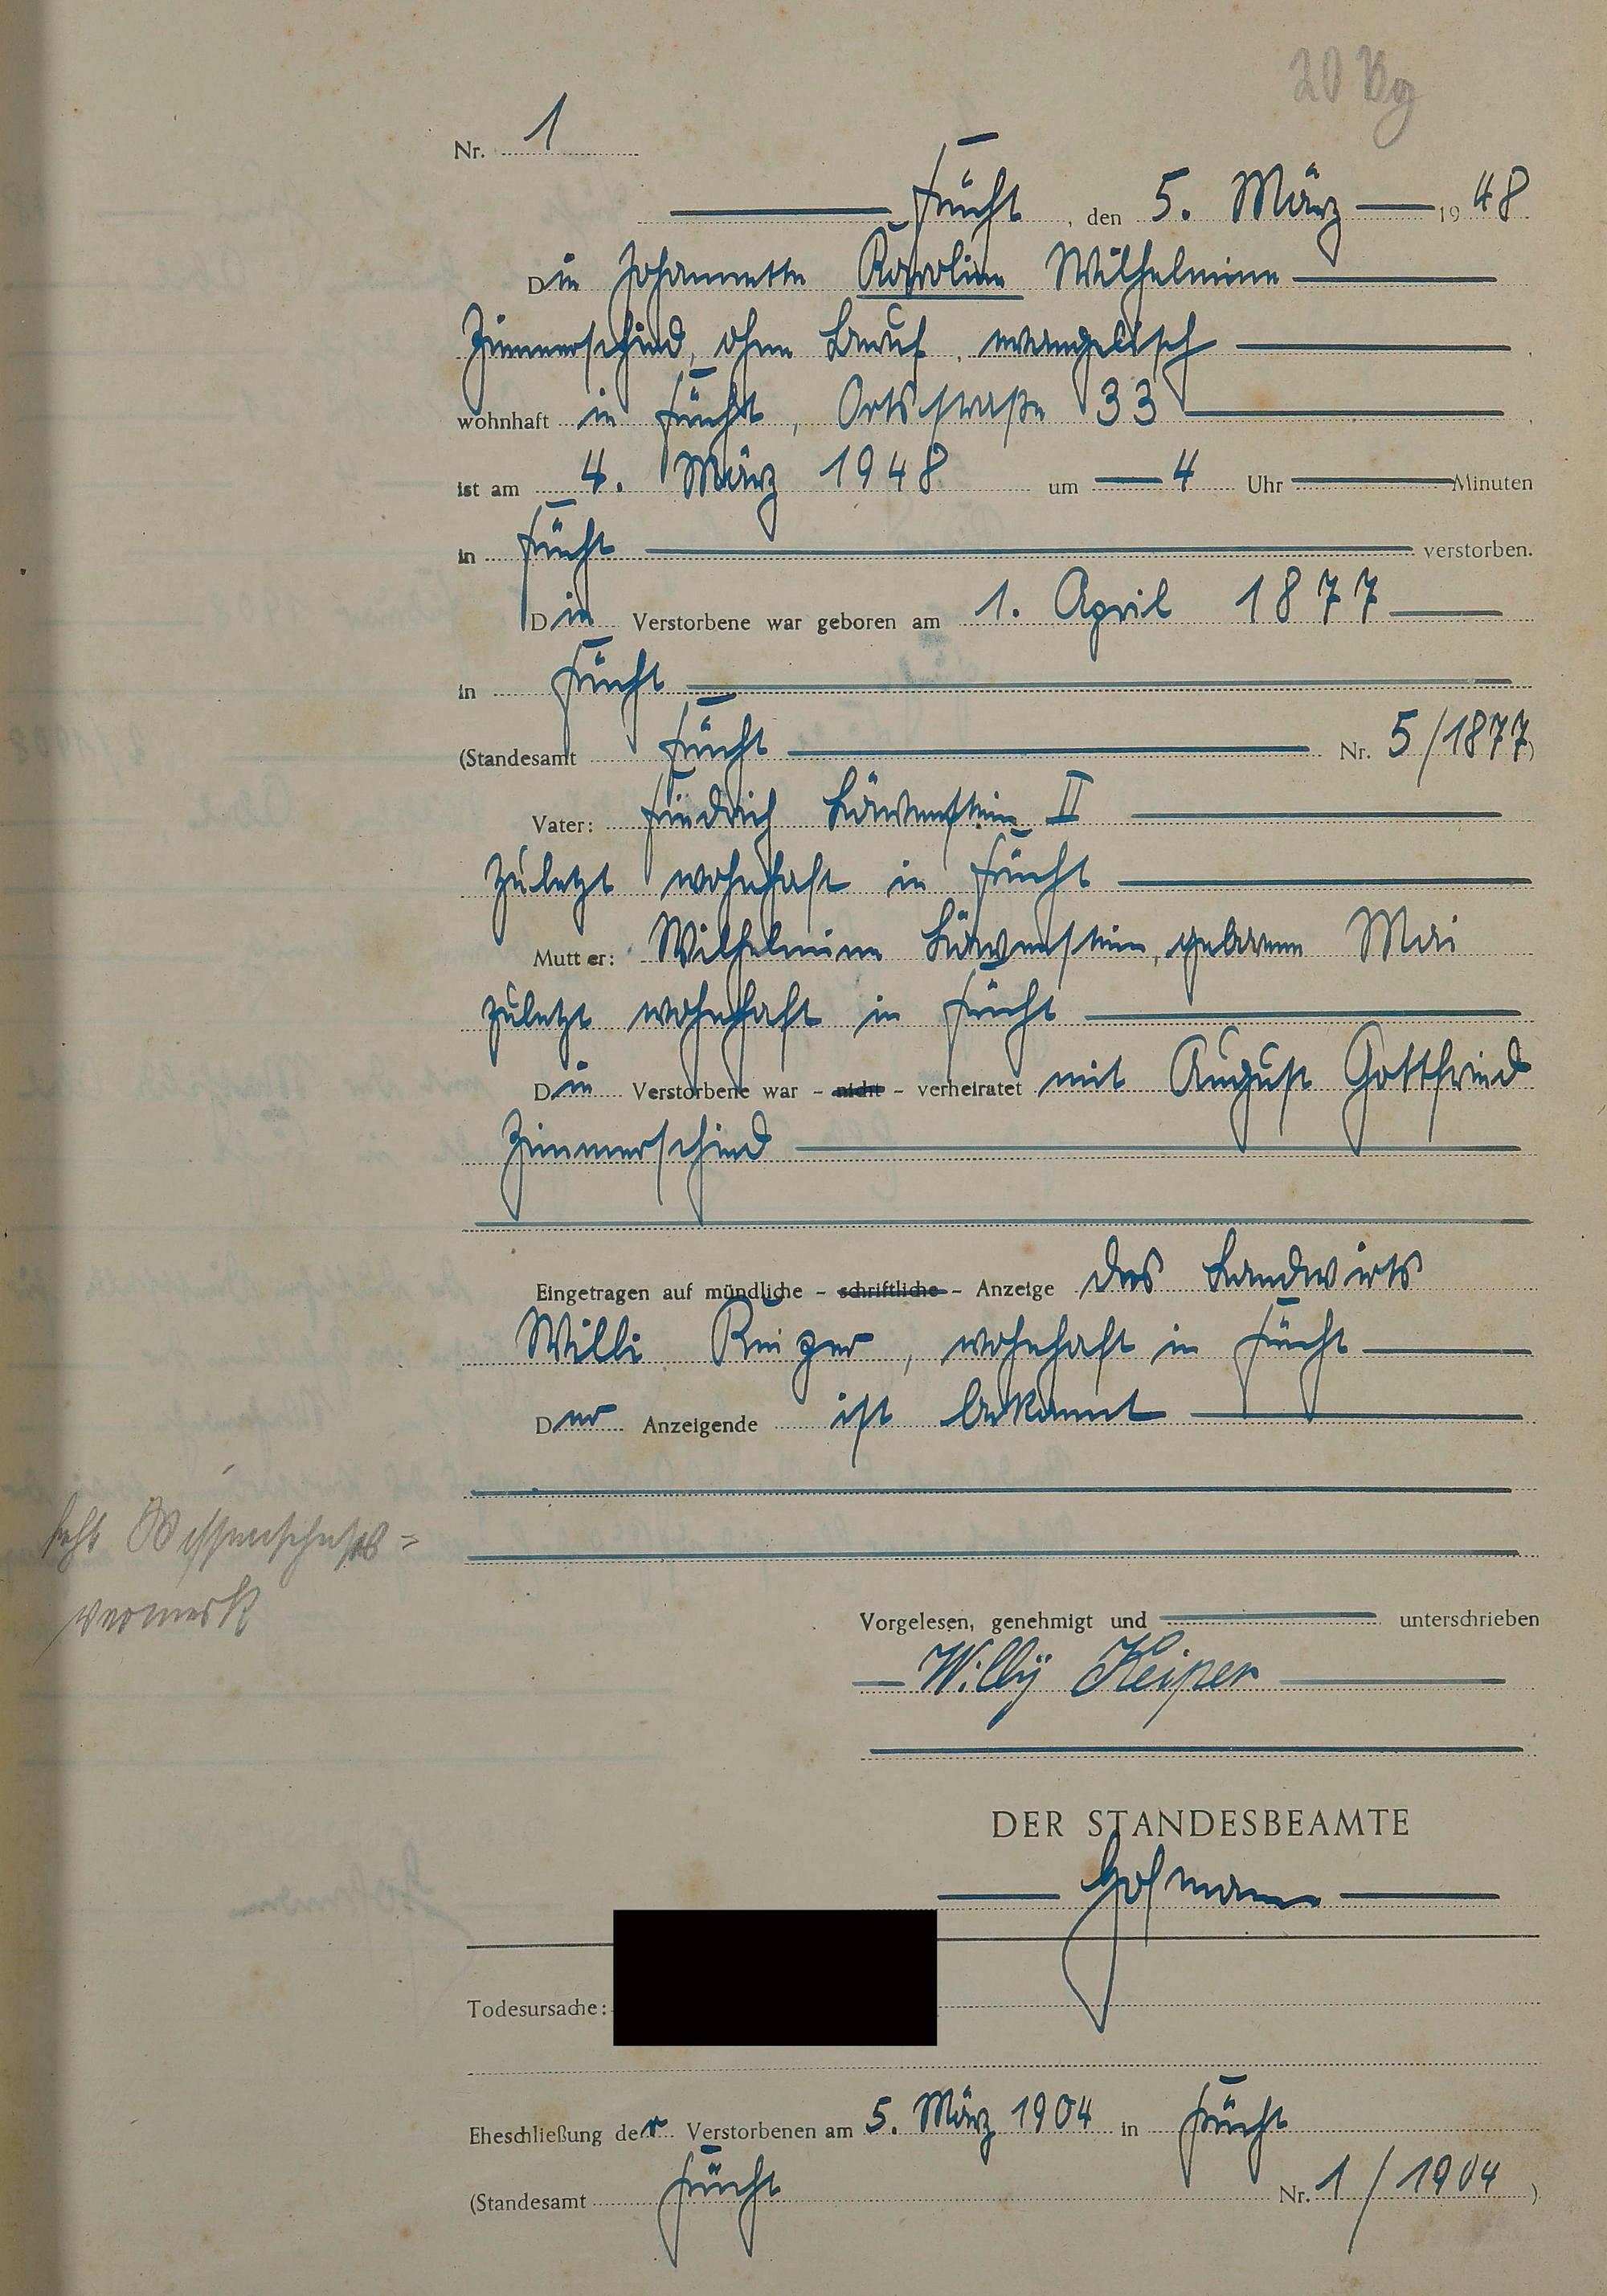 20 Bg
Nr. 1
Frücht, den 5. März 1948
Die Johannette Karoline Wilhelmine
Zimmerschied, ohne Beruf, evangelisch
wohnhaft in Frücht, Ortsstraße 33
ist am 4. März 1948 um 4 Uhr Minuten
in Frücht verstorben.
Die Verstorbene war geboren am 1. April 1877
in Frücht
(Standesamt Frücht Nr. 5/1877)
Vater: Friedrich Löwenstein II
zuletzt wohnhaft in Frücht
Mutter: Wilhelmine Löwenstein, geborene Mai
zuletzt wohnhaft in Frücht
Die Verstorbene war - nicht - verheiratet mit August Gottfried
Zimmerschied
Eingetragen auf mündliche - schriftliche - Anzeige des Landwirts
Willi Keiper, wohnhaft in Frücht
Der Anzeigende ist bekannt
vermerk
Vorgelesen, genehmigt und unterschrieben
Willÿ Keiper
DER STANDESBEAMTE
Hofmann
Todesursache:
Eheschließung der Verstorbenen am 5. März 1904 in Frücht
(Standesamt Frücht Nr. 1/1904)